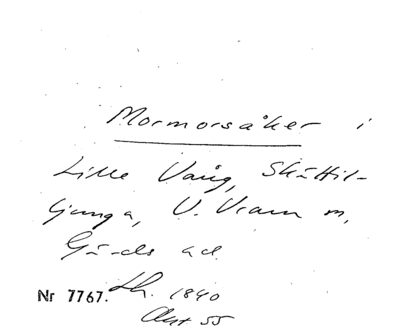 Mormorsåker i
Lille Vång, Skättil-
ljunga, V. Vram m,
Gärds ad.
Nr 7767. Lh. 1840
Akt 55